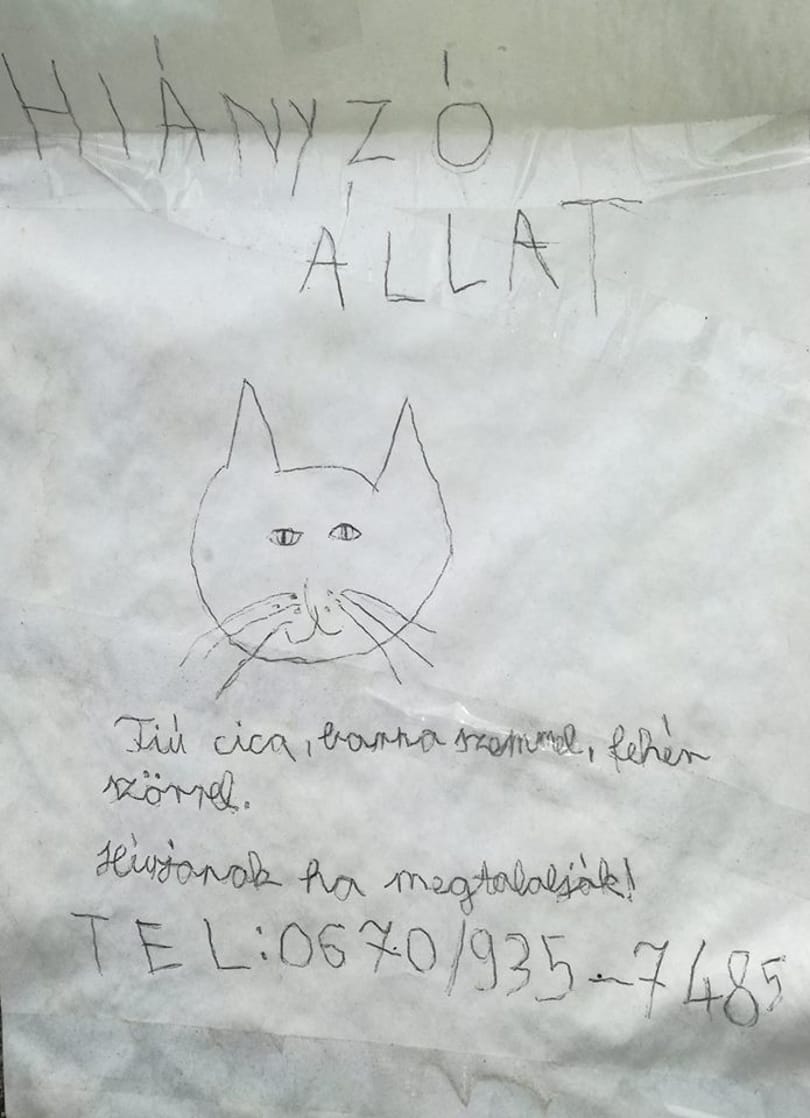 HIÁNYZÓ
ÁLLAT
Fiú cica, barna szemmel, fehér
szőrrel.
Hívjanak ha megtalalják!
TEL:0670/935-7485